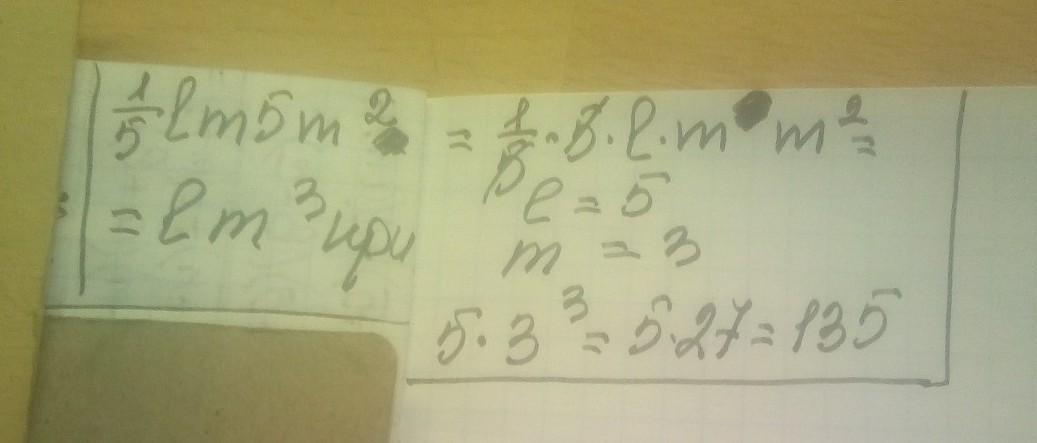 1/5 lm5m² = 1/5 · 5 · l · m · m² =
= lm³ при l = 5
m = 3
5 · 3³ = 5 · 27 = 135